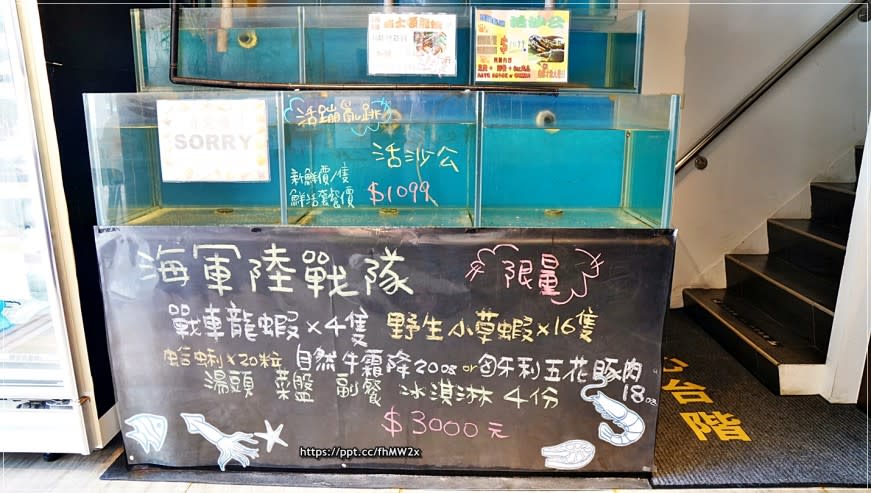 SORRY
活沙公
活蹦亂跳
活沙公
新鮮價/隻
鮮活套餐價 $1099
海軍陸戰隊
限量
戰車龍蝦x4隻 野生小草蝦x16隻
蛤蜊x20粒 自然牛霜降20oz or 匈牙利五花豚肉18oz
湯頭 菜盤 副餐 冰淇淋 4份
$3000元
台階
https://ppt.cc/fhMW2x